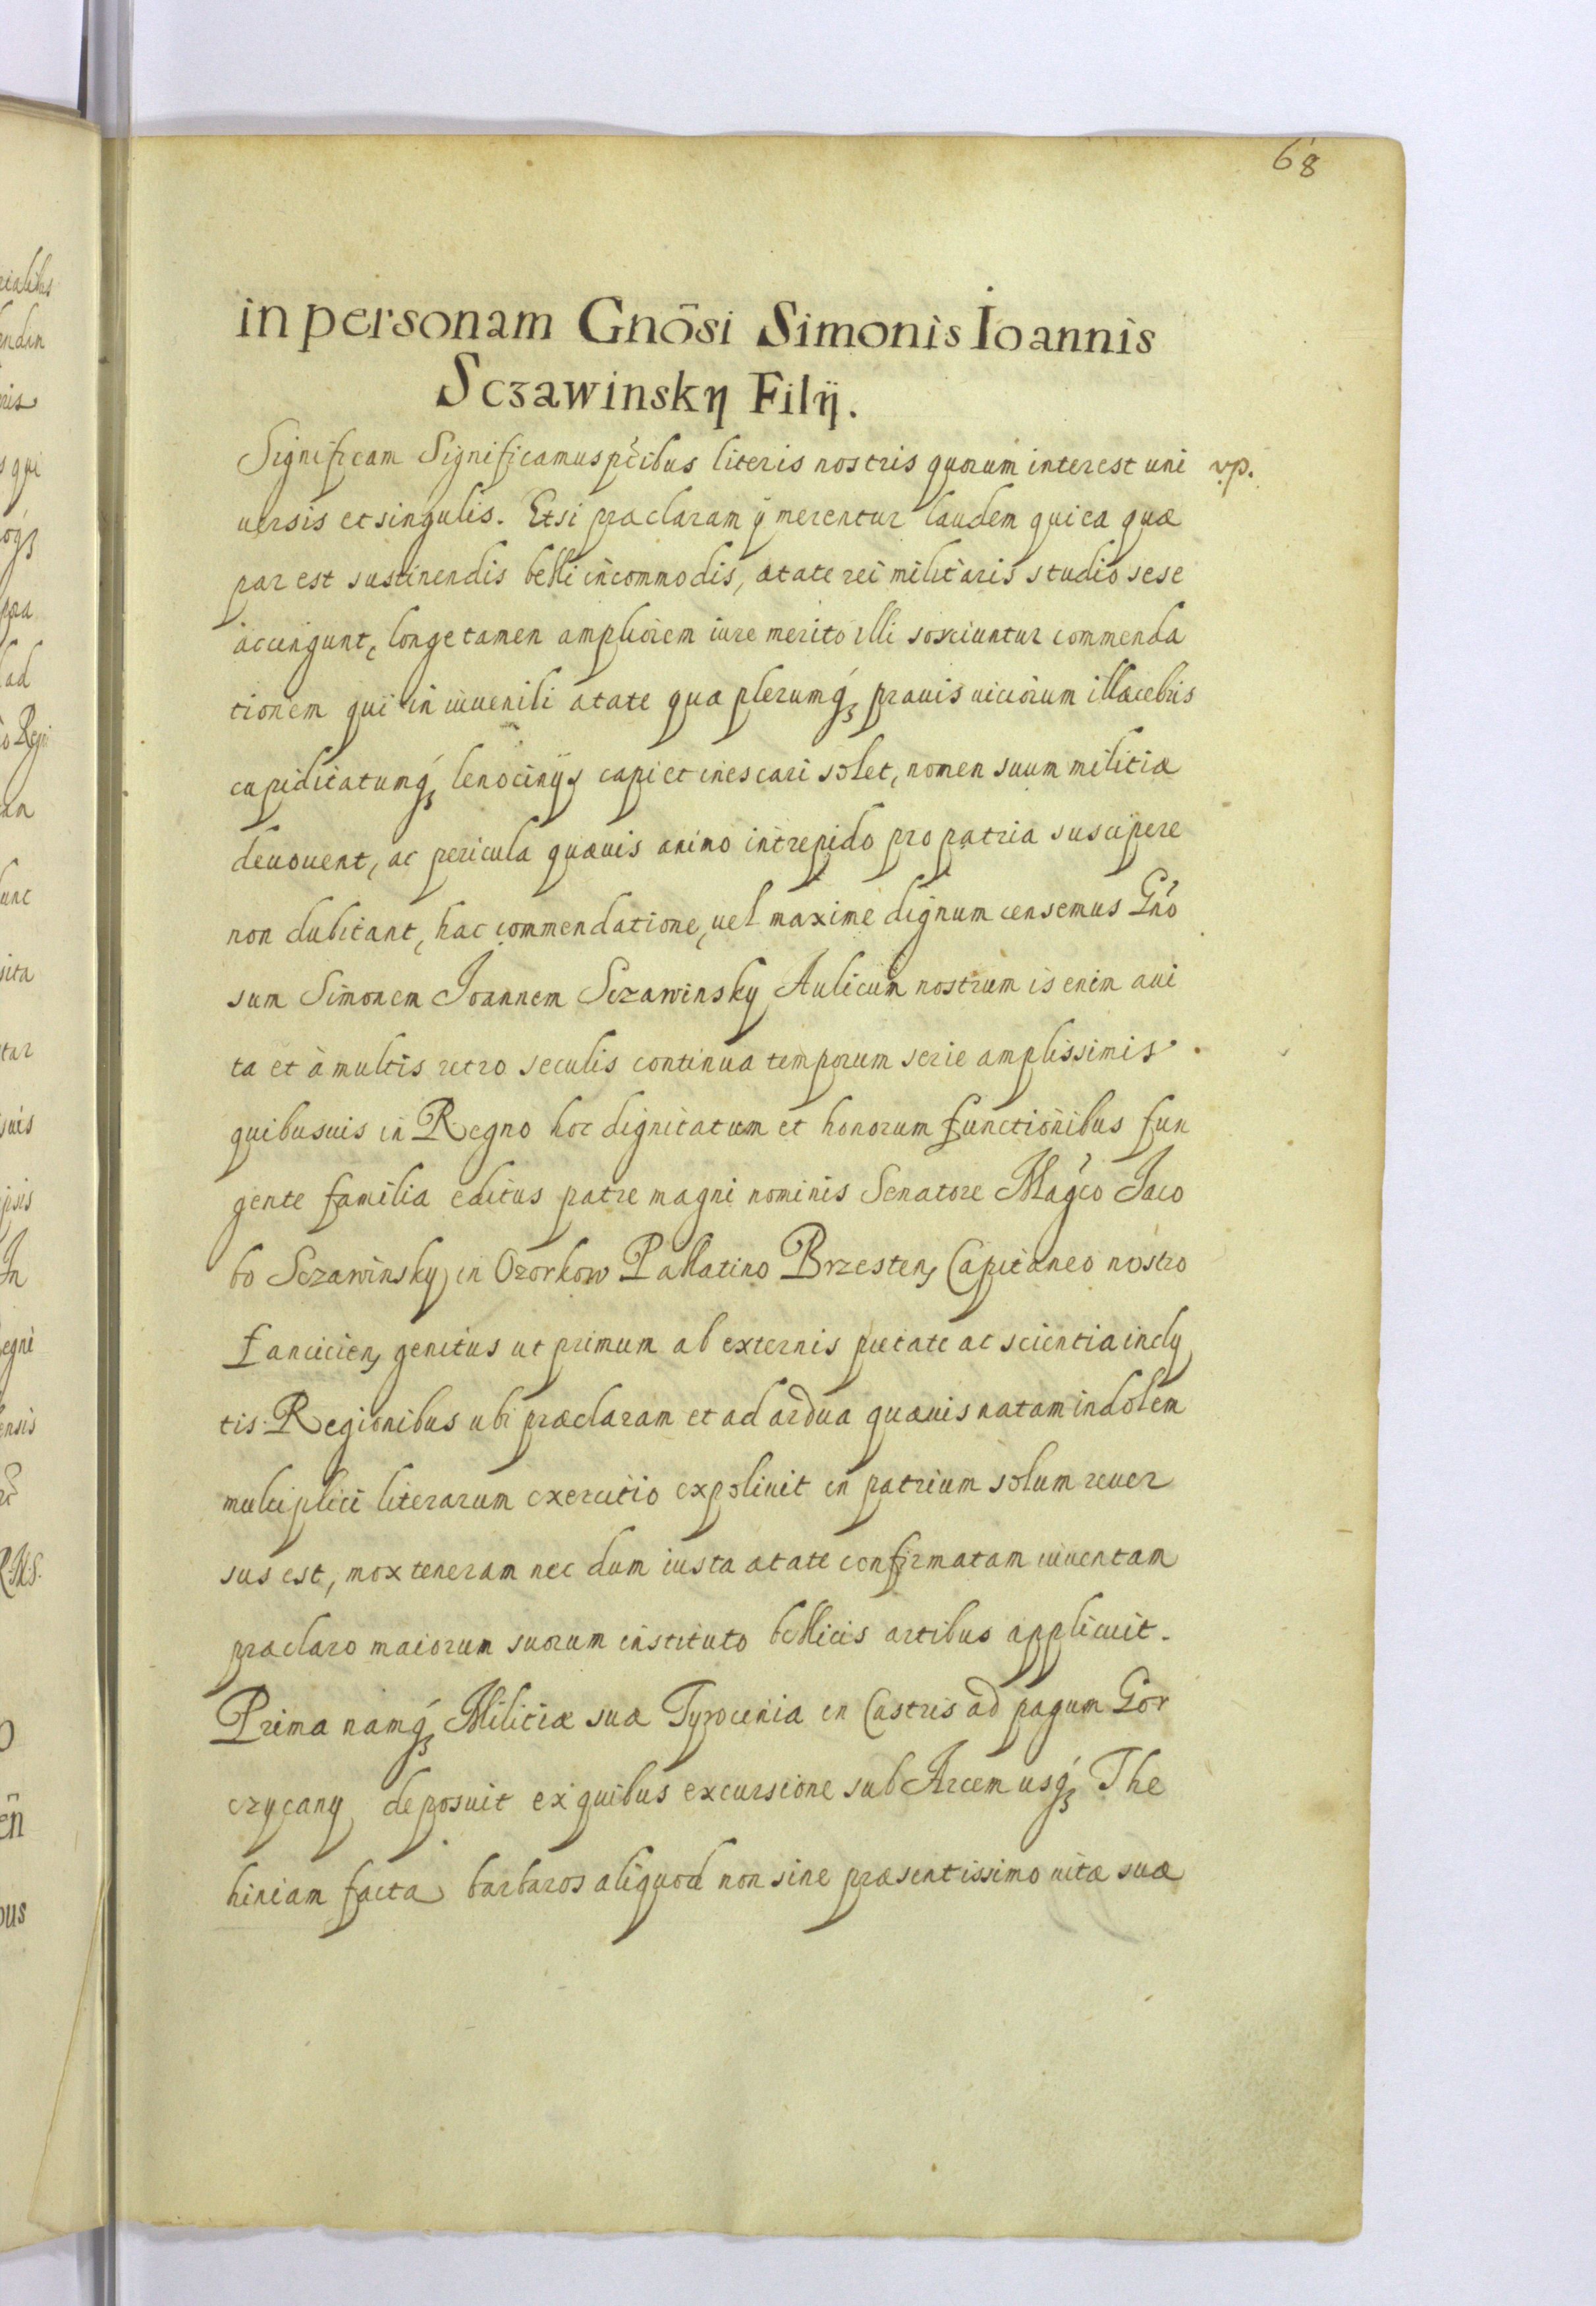 68
in personam Gnōsi Simonis Ioannis
Sczawinsky Filÿ.
Significam Significamus ptibus literis nostris quorum interest uni vp.
uersis et singulis. Etsi praclaram ÿ merentur laudem qui ea quæ
par est sustinendis belli incommodis, ætate rei militaris studio sese
accingunt, longe tamen ampliorem iure merito illi sorciuntur commenda
tionem qui in iuuenili ætate qua plerumq́ prauis uiciorum illæcebris
cupiditatumq́ lenocinÿs capi et inescari solet, nomen suum militiæ
deuouent, ac pericula quæuis animo intrepido pro patria suscipere
non dubitant, hac commendatione, uel maxime dignum censemus Gno
sum Simonem Joannem Sczawinsky Aulicum nostrum is enim aui
ta et à multis retro seculis continua temporum serie amplissimis
quibusuis in Regno hoc dignitatum et honorum functionibus fun
gente familia editus patre magni nominis Senatore Magco Jaco
bo Sczawinsky in Ozorkow Pallatino Brzesten, Capitaneo nostro
Łancicien, genitus ut primum ab externis pietate ac scientia incly
tis Regionibus ubi præclaram et ad ardua quæuis natam indolem
multiplici literarum exercitio expoliuit in patrium solum reuer
sus est, mox teneram nec dum iusta ætate confirmatam iuuentam
præclaro maiorum suorum instituto bellicis artibus applicuit.
Prima namq́ Militiæ suæ Tyrocinia in Castris ad pagum Gor
czycany deposuit ex quibus excursione sub Arcem usq́ The
hiniam facta barbaros aliquod non sine præsentissimo uitæ suæ